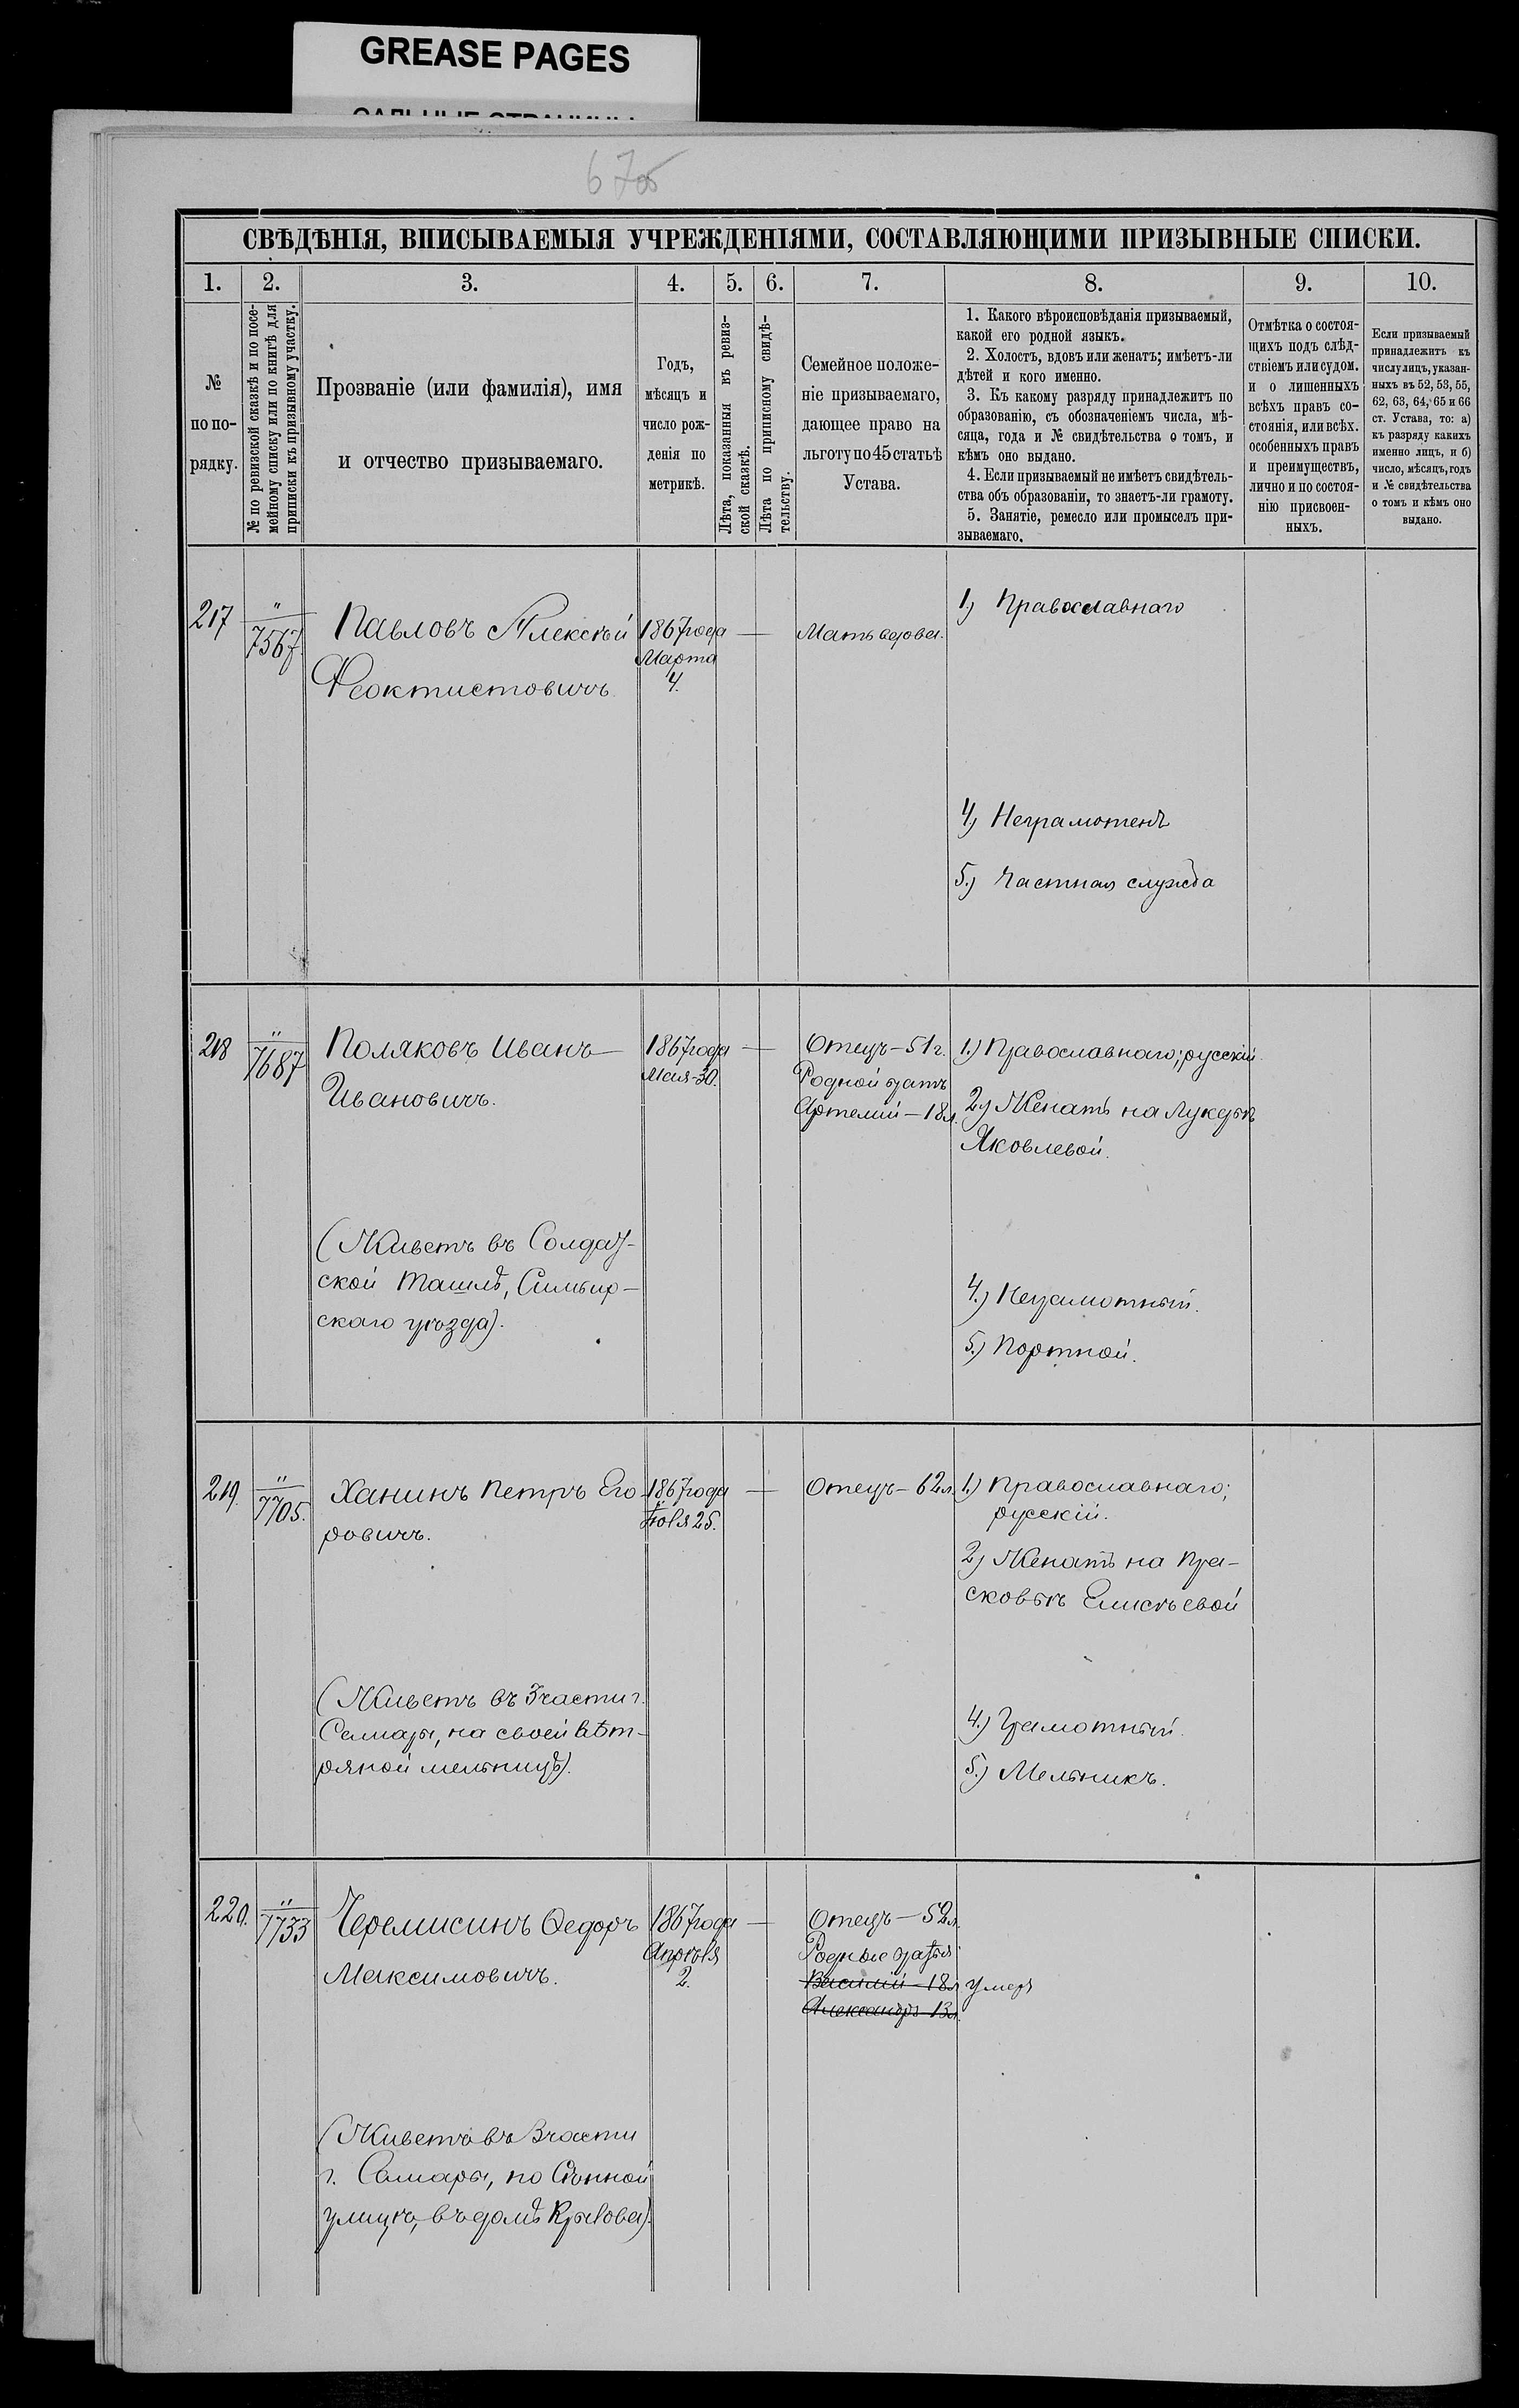 GREASE PAGES
САЛЬНЫЕ СТРАНИЦЫ
670
СВѢДѢНІЯ, ВПИСЫВАЕМЫЯ УЧРЕЖДЕНІЯМИ, СОСТАВЛЯЮЩИМИ ПРИЗЫВНЫЕ СПИСКИ.
1. 2. 3. 4. 5. 6. 7. 8. 9. 10.
№
по по-
рядку.
№ по ревизской сказкѣ и по посе-
мейному списку или по книгѣ для
приписки къ призывному участку.
Прозваніе (или фамилія), имя
и отчество призываемаго.
Годъ,
мѣсяцъ и
число рож-
денія по
метрикѣ.
Лѣта, показанныя въ ревиз-
ской сказкѣ.
Лѣта по приписному свидѣ-
тельству.
Семейное положе-
ніе призываемаго,
дающее право на
льготу по 45 статьѣ
Устава.
1. Какого вѣроисповѣданія призываемый,
какой его родной языкъ.
2. Холостъ, вдовъ или женатъ; имѣетъ-ли
дѣтей и кого именно.
3. Къ какому разряду принадлежитъ по
образованію, съ обозначеніемъ числа, мѣ-
сяца, года и № свидѣтельства о томъ, и
кѣмъ оно выдано.
4. Если призываемый не имѣетъ свидѣтель-
ства объ образованіи, то знаетъ-ли грамоту.
5. Занятіе, ремесло или промыселъ при-
зываемаго.
Отмѣтка о состоя-
щихъ подъ слѣд-
ствіемъ или судом.
и о лишенныхъ
всѣхъ правъ со-
стоянія, или всѣх.
особенныхъ правъ
и преимуществъ,
лично и по состоя-
нію присвоен-
ныхъ.
Если призываемый
принадлежитъ къ
числу лицъ, указан-
ныхъ въ 52, 53, 55,
62, 63, 64, 65 и 66
ст. Устава, то: а)
къ разряду какихъ
именно лицъ, и б)
число, мѣсяцъ, годъ
и № свидѣтельства
о томъ и кѣмъ оно
выдано.
217
"
7567
Павловъ Алексѣй
Феоктистовичъ
1867 года
Марта
4.
—
Мать вдова.
1) Православнаго
4) Неграмотенъ
5.) Частная служба
218
"
7687
Поляковъ Иванъ
Ивановичъ.
(Живетъ въ Солдат-
ской Ташлѣ, Симбир-
скаго уѣзда).
1867 года
Мая-30.
—
Отецъ-51 г.
Родной братъ
Артемій-18 л.
1.) Православнаго; русскій
2) Женатъ на Лукерьѣ
Яковлевой.
4.) Неграмотный.
5.) Портной.
219.
"
7705.
Ханинъ Петръ Его-
ровичъ.
(Живетъ въ 3 части г.
Самары, на своей вѣт-
ряной мельницѣ).
1867 года
Іюля 25.
—
Отецъ-62 л.
1.) Православнаго;
русскій.
2) Женатъ на Пра-
сковьѣ Елисѣевой
4.) Грамотный.
5.) Мельникъ.
220.
"
7733
Черемисинъ Федоръ
Максимовичъ.
(Живетъ въ 3 части
г. Самары, по Сѣнной
улицѣ, въ домѣ Крылова).
1867 года
Апрѣля
2.
—
Отецъ-52 л.
Родные братья:
Василій-18 л. умеръ
Александръ-13 л.